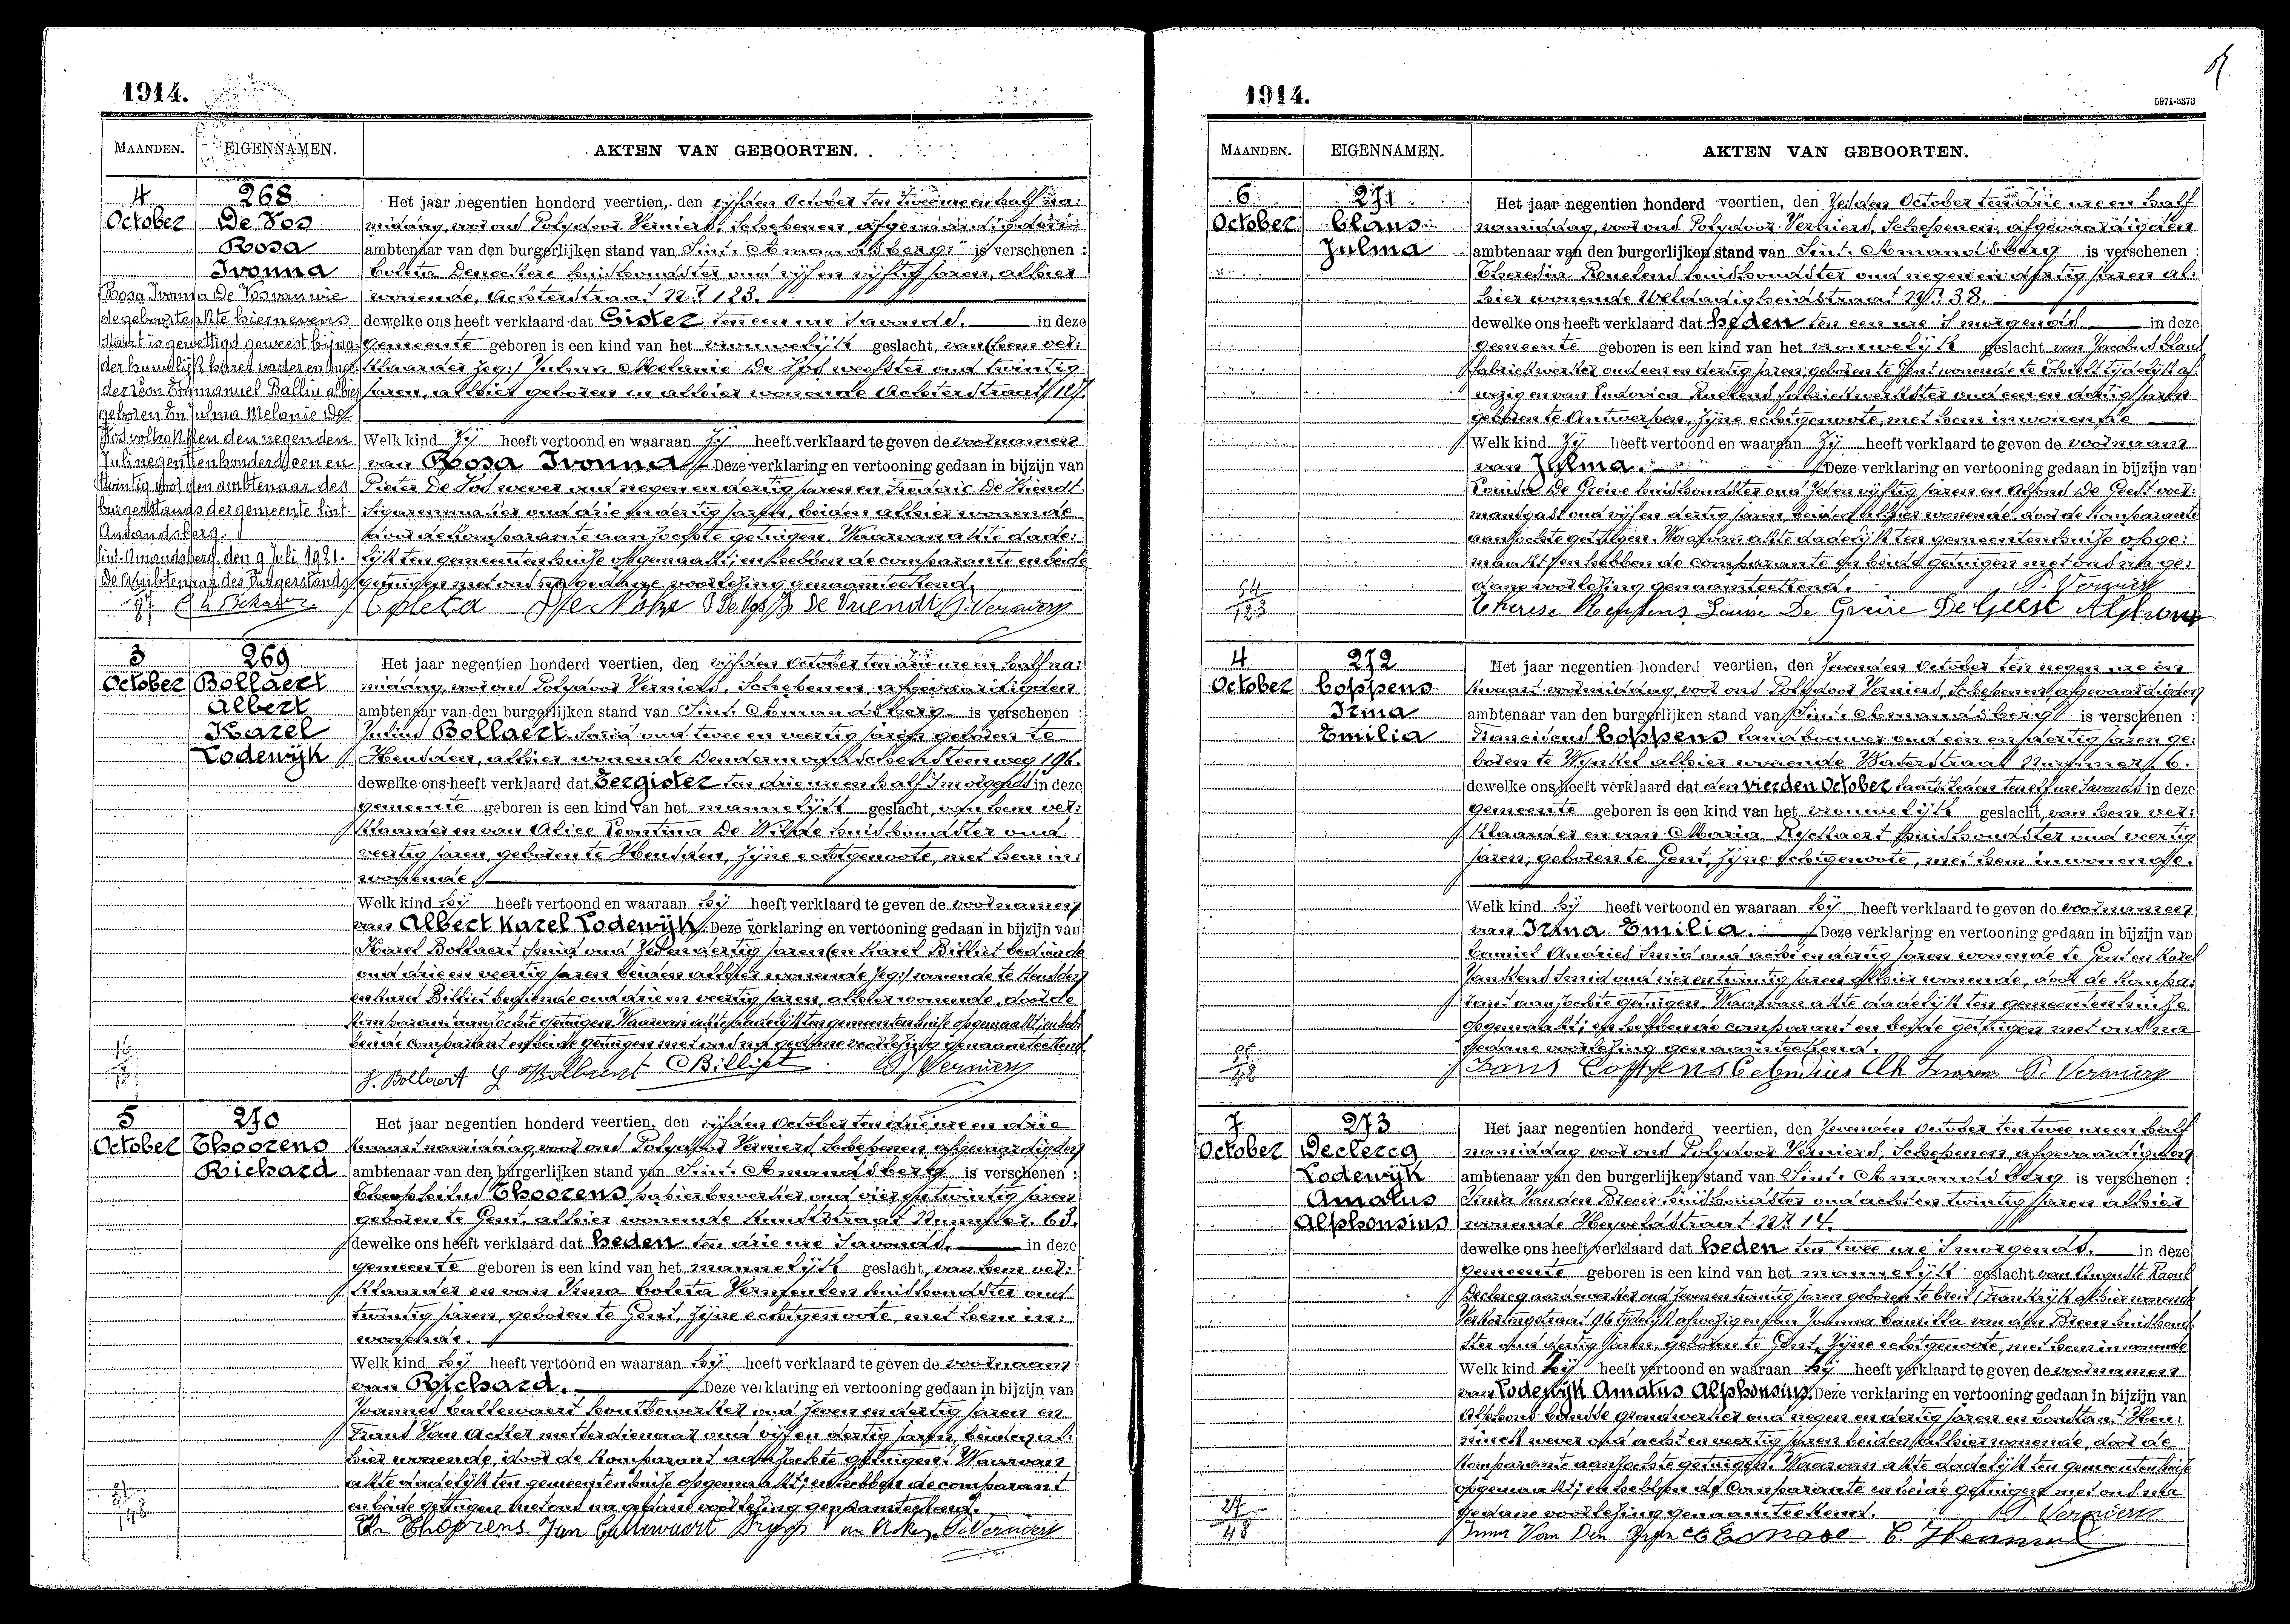 1914.
MAANDEN. EIGENNAMEN. AKTEN VAN GEBOORTEN.
4 268 Het jaar negentien honderd veertien, den vijfden October ten twee ure en half na:
October De Vos middag, voor ons Polydoor Verniers, Schepenen, afgevaardigden
Rosa ambtenaar van den burgerlijken stand van Sint-Amandsberg is verschenen :
Ivonna Coleta Denockere huishoudster oud vijf en vijftig jaren, alhier
wonende, Achterstraat No 123.
dewelke ons heeft verklaard dat Gister ten een ure 's avonds. in deze
gemeente geboren is een kind van het vrouwelijk geslacht, van (hem ver:
klaarder zeg:) Julma Melanie De Vos weefster oud twintig
jaren, alhier geboren en alhier wonende Achterstraat 127.
Welk kind Zij heeft vertoond en waaraan Zij heeft verklaard te geven de voornamen
van Rosa Ivonna Deze verklaring en vertooning gedaan in bijzijn van
Pieter De Vos wever oud negen en dertig jaren en Frederic De Vriendt
Sigarenmaker oud drie en dertig jaren, beiden alhier wonende
door de komparante aanzochte getuigen. Waarvan akte dade:
lijk ten gemeentenhuise opgemaakt; en hebben de comparante en beide
getuigen met ons na gedane voorlezing genaamteekend.
Rosa Ivonna De Vos van wie
de geboorteakte hiernevens
staat is gewettigd geweest bij na-
der huwelijk
der Léon Emmanuel Ballin alhier
geboren En Julma Melanie De
Vos voltrokken den negenden
Juli negentienhonderd een en
twintig voor den ambtenaar des
burgerstands der gemeente Sint-
Amandsberg.
Sint-Amandsberg, den 9 Juli 1921.
De Ambtenaar des Burgerstands,
De Vriendt P. Verniers
3 269 Het jaar negentien honderd veertien, den vijfden October ten drie ure en half na:
October Bollaert middag, voor ons Polydoor Verniers, Schepenen, afgevaardigden
Albert ambtenaar van den burgerlijken stand van Sint-Amandsberg is verschenen :
Karel Julius Bollaert smid oud twee en veertig jaren geboren te
Lodewijk Heusden, alhier wonende Dendermondschensteenweg 196.
dewelke ons heeft verklaard dat Eergister ten drie ure en half 's morgends in deze
gemeente geboren is een kind van het mannelijk geslacht, van hem ver:
klaarder en van Alice Leontina De Wilde huishoudster oud
veertig jaren, geboren te Heusden, zijne echtgenoote, met hem in:
wonende.
Welk kind Hij heeft vertoond en waaraan Hij heeft verklaard te geven de voornamen
van Albert Karel Lodewijk. Deze verklaring en vertooning gedaan in bijzijn van
Karel Bollaert smid oud Zes en dertig jaren (en Karel Billiet bediende
oud drie en veertig jaren beiden alhier wonende zeg:) wonende te Heusden
en Karel Billiet bediende oud drie en veertig jaren, alhier wonende, door de
komparant aanzochte getuigen. Waarvan akte dadelijk ten gemeentenhuise opgemaakt; en heb:
ben de comparant en beide getuigen met ons na gedane voorlezing genaamteekend.
J. Bollaert Bollaert C Billiet P. Verniers
5 270 Het jaar negentien honderd veertien, den vijfden October ten drie ure en drie
October Thoorens kwaart namiddag, voor ons Polydoor Verniers, Schepenen, afgevaardigden
Richard ambtenaar van den burgerlijken stand van Sint-Amandsberg is verschenen :
Theophilus Thoorens, papierbewerker oud vier en twintig jaren
geboren te Gent, alhier wonende Kunststraat Nummer 63.
dewelke ons heeft verklaard dat heden ten drie ure 's avonds. in deze
gemeente geboren is een kind van het mannelijk geslacht, van hem ver:
klaarder en van Irma Coleta huishoudster oud
twintig jaren, geboren te Gent, zijne echtgenoote, met hem in:
wonende.
Welk kind Hij heeft vertoond en waaraan Hij heeft verklaard te geven de voornaam
van Richard. Deze verklaring en vertooning gedaan in bijzijn van
Joannes Callewaert houtbewerker oud Zeven en dertig jaren en
Frans Van Acker metserdienaar oud vijf en dertig jaren, beiden al:
hier wonende, door de komparant aanzochte getuigen. Waarvan
akte dadelijk ten gemeentenhuise opgemaakt; en hebben de comparant
en beide getuigen met ons na gedane voorlezing genaamteekend.
Th. Thoorens Jan Callewaert Van Acker P. Verniers
1914.
5971-3373
MAANDEN. EIGENNAMEN. AKTEN VAN GEBOORTEN.
6 271 Het jaar negentien honderd veertien, den Zesden October ten drie ure en half
October Claus namiddag, voor ons Polydoor Verniers, Schepenen, afgevaardigden
Julma ambtenaar van den burgerlijken stand van Sint-Amandsberg is verschenen :
Theresia huishoudster oud negen en dertig jaren al:
hier wonende Weldadigheidstraat No 38.
dewelke ons heeft verklaard dat heden ten een ure 's morgends in deze
gemeente geboren is een kind van het vrouwelijk geslacht, van Jacobus Claus
fabriekwerker oud een en dertig jaren, geboren te Gent wonende te tijdelijk af:
wezig en van Ludovica fabriekwerkster oud een en dertig jaren
geboren te Antwerpen, zijne echtgenoote, met hem inwonende
Welk kind Zij heeft vertoond en waaraan Zij heeft verklaard te geven de voornaam
van Julma. Deze verklaring en vertooning gedaan in bijzijn van
Louisa De Greive huishoudster oud Zes en vijftig jaren en Alfons De Geest voer:
mansgast oud vijf en dertig jaren, beiden alhier wonende, door de komparante
aanzochte getuigen. Waarvan akte dadelijk ten gemeentenhuise opge:
maakt; en hebben de comparante en beide getuigen met ons na ge:
dane voorlezing genaamteekend. P. Verniers
54
123
De Greive De Geest Alphons
4 272 Het jaar negentien honderd veertien, den Zevenden October ten negen ure en
October Coppens kwaart voormiddag, voor ons Polydoor Verniers, Schepenen, afgevaardigden
Irma ambtenaar van den burgerlijken stand van Sint-Amandsberg is verschenen :
Emilia Franciscus Coppens Landbouwer oud een en veertig jaren ge:
boren te Wynkel alhier wonende Waterstraat Nummer 6.
dewelke ons heeft verklaard dat den vierden October laatstleden ten elf ure 's avonds in deze
gemeente geboren is een kind van het vrouwelijk geslacht, van hem ver:
klaarder en van Maria Ryckaert huishoudster oud veertig
jaren; geboren te Gent, zijne echtgenoote, met hem inwonende.
Welk kind Hij heeft vertoond en waaraan Hij heeft verklaard te geven de voornamen
van Irma Emilia. Deze verklaring en vertooning gedaan in bijzijn van
Camiel Andries smid oud acht en dertig jaren wonende te Gent en Karel
Janssens smid oud vier en twintig jaren alhier wonende, door de kompa:
rant aanzochte getuigen. Waarvan akte dadelijk ten gemeentenhuise
opgemaakt; en hebben de comparant en beide getuigen met ons na
gedane voorlezing genaamteekend.
Frans Coppens C Andries P. Verniers
7 273 Het jaar negentien honderd veertien, den Zevenden October ten twee ure en half
October Declercq namiddag voor ons Polydoor Verniers, Schepenen, afgevaardigden
Lodewijk ambtenaar van den burgerlijken stand van Sint-Amandsberg is verschenen :
Amatus Irma Van den Breen huishoudster oud acht en twintig jaren alhier
Alphonsius wonende Heyveldstraat No 14.
dewelke ons heeft verklaard dat heden ten twee ure 's morgends. in deze
gemeente geboren is een kind van het mannelijk geslacht van Auguste Raoul
Declercq aardewerker oud Zeven en twintig jaren geboren te Creil (Frankrijk) alhier wonende
Verkortingstraat 96 tijdelijk afwezig en van Joanna Camilla van den Breen huishoud:
ster oud dertig jaren, geboren te Gent, zijne echtgenoote, met hem inwonende
Welk kind Zij heeft vertoond en waaraan Zij heeft verklaard te geven de voornamen
van Lodewijk Amatus Alphonsius. Deze verklaring en vertooning gedaan in bijzijn van
Alphons grondwerker oud negen en dertig jaren en Constant Hen:
ninck wever oud acht en veertig jaren beiden alhier wonende, door de
komparante aanzochte getuigen. Waarvan akte dadelijk ten gemeentenhuise
opgemaakt; en hebben de comparante en beide getuigen met ons na
gedane voorlezing genaamteekend. P. Verniers
27
48
Irma Van Den